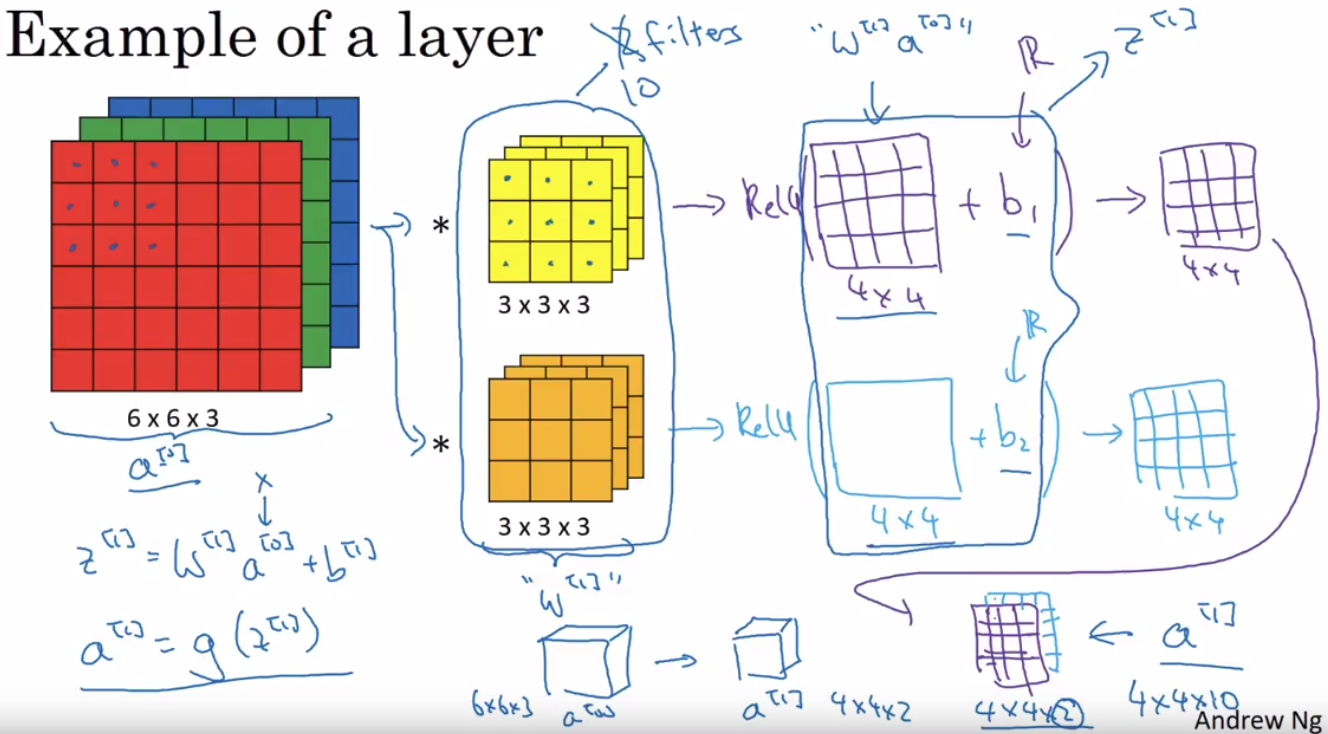 Example of a layer
2 filters
10
"W^[1] a^[0]"
ℝ
z^[1]
*
3 x 3 x 3
→ ReLU ( + b₁ ) →
4 x 4
4 x 4
6 x 6 x 3
a^[0]
*
3 x 3 x 3
→ ReLU ( + b₂ ) →
ℝ
4 x 4
4 x 4
x
↓
z^[1] = W^[1] a^[0] + b^[1]
a^[1] = g(z^[1])
"W^[1]"
6x6x3
a^[0]
→
a^[1]
4x4x2
4x4x2
← a^[1]
4x4x10
Andrew Ng